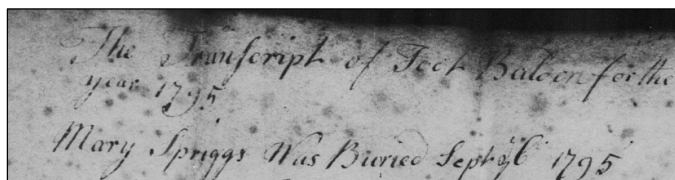 The Transcript of Toot Baldon for the
year 1795
Mary Spriggs Was Buried Sept 1795